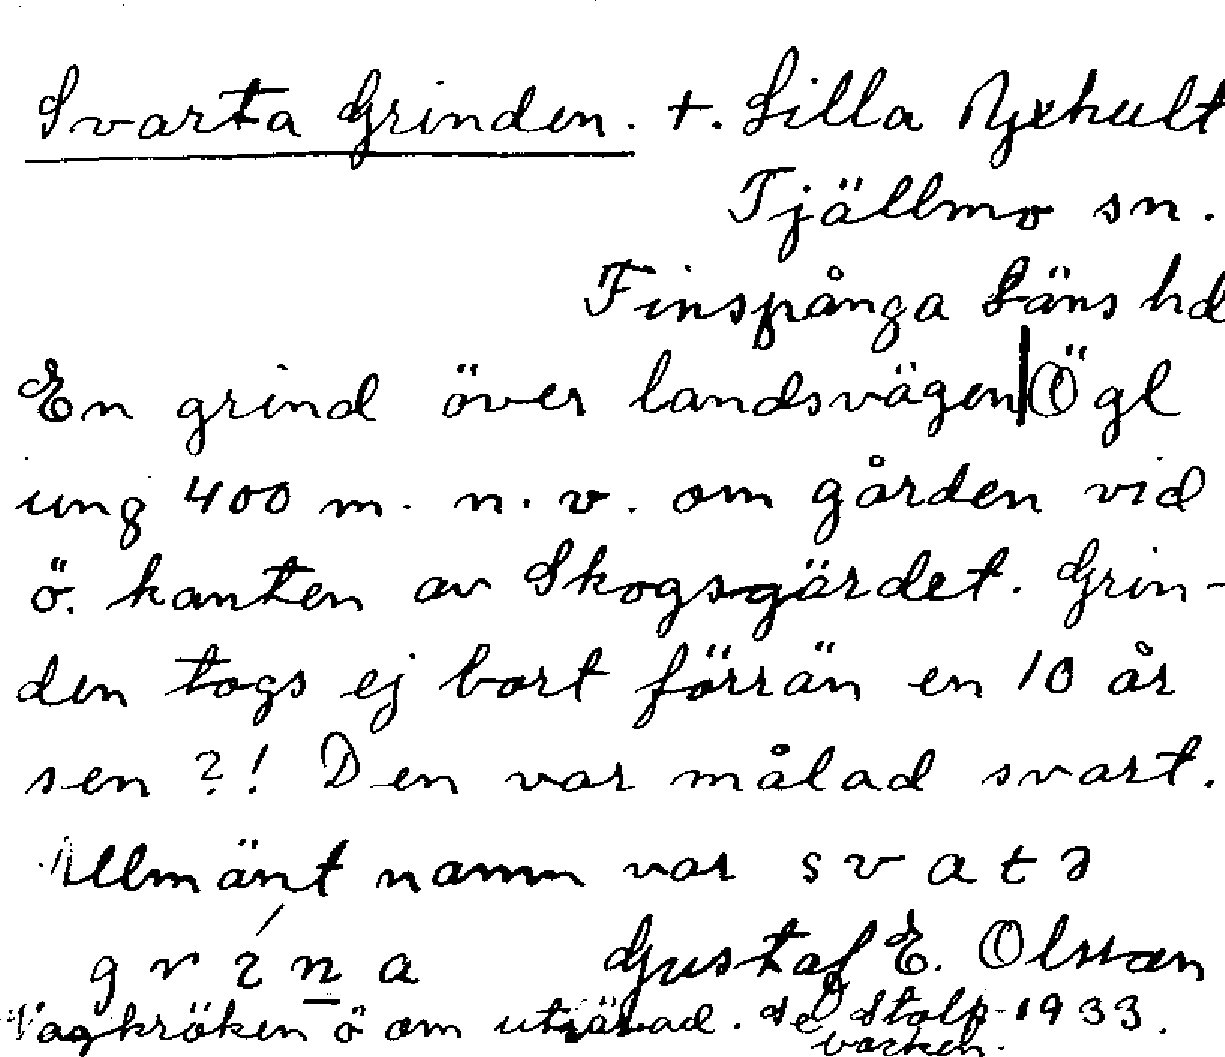 Svarta Grinden. +. Lilla Yxhult
Tjällmo sn.
Finspånga Läns hd
En grind över landsvägen Ögl
ung 400 m. n. v. om gården vid
ö. kanten av Skogsgärdet. Grin-
den togs ej bort förrän en 10 år
sen ?! Den var målad svart.
Allmänt namn var s v a t a
g r i n a Gustaf E. Olsson
Vägkröken ö om uträtad. 1933.